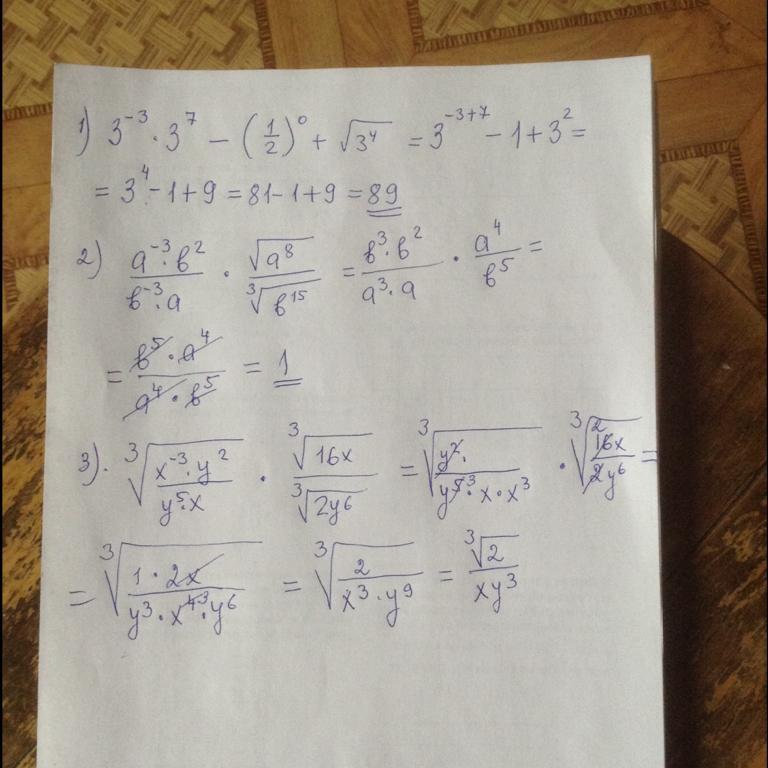 1) 3⁻³ · 3⁷ − (1/2)⁰ + √3⁴ = 3⁻³⁺⁷ − 1 + 3² =
= 3⁴ − 1 + 9 = 81 − 1 + 9 = 89
2) (a⁻³ · b²)/(b⁻³ · a) · √a⁸/∛b¹⁵ = (b³ · b²)/(a³ · a) · a⁴/b⁵ =
= (b⁵ · a⁴)/(a⁴ · b⁵) = 1
3). ∛((x⁻³ · y²)/(y⁵ · x)) · ∛(16x)/∛(2y⁶) = ∛(y² ·/(y⁵ ³ · x · x³)) · ∛(16 2 x/(2y⁶)) =
= ∛((1 · 2x)/(y³ · x⁴ ³ · y⁶)) = ∛(2/(x³ · y⁹)) = ∛2/(xy³)